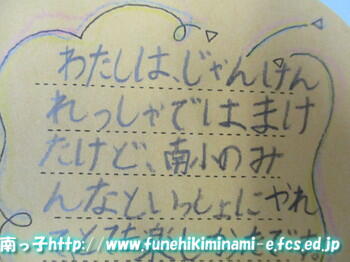 わたしは、じゃんけん
れっしゃでは、まけ
たけど、南小のみ
んなといっしょにやれ
てとても楽しかったです。
南っ子http://www.funehikiminami-e.fcs.ed.jp